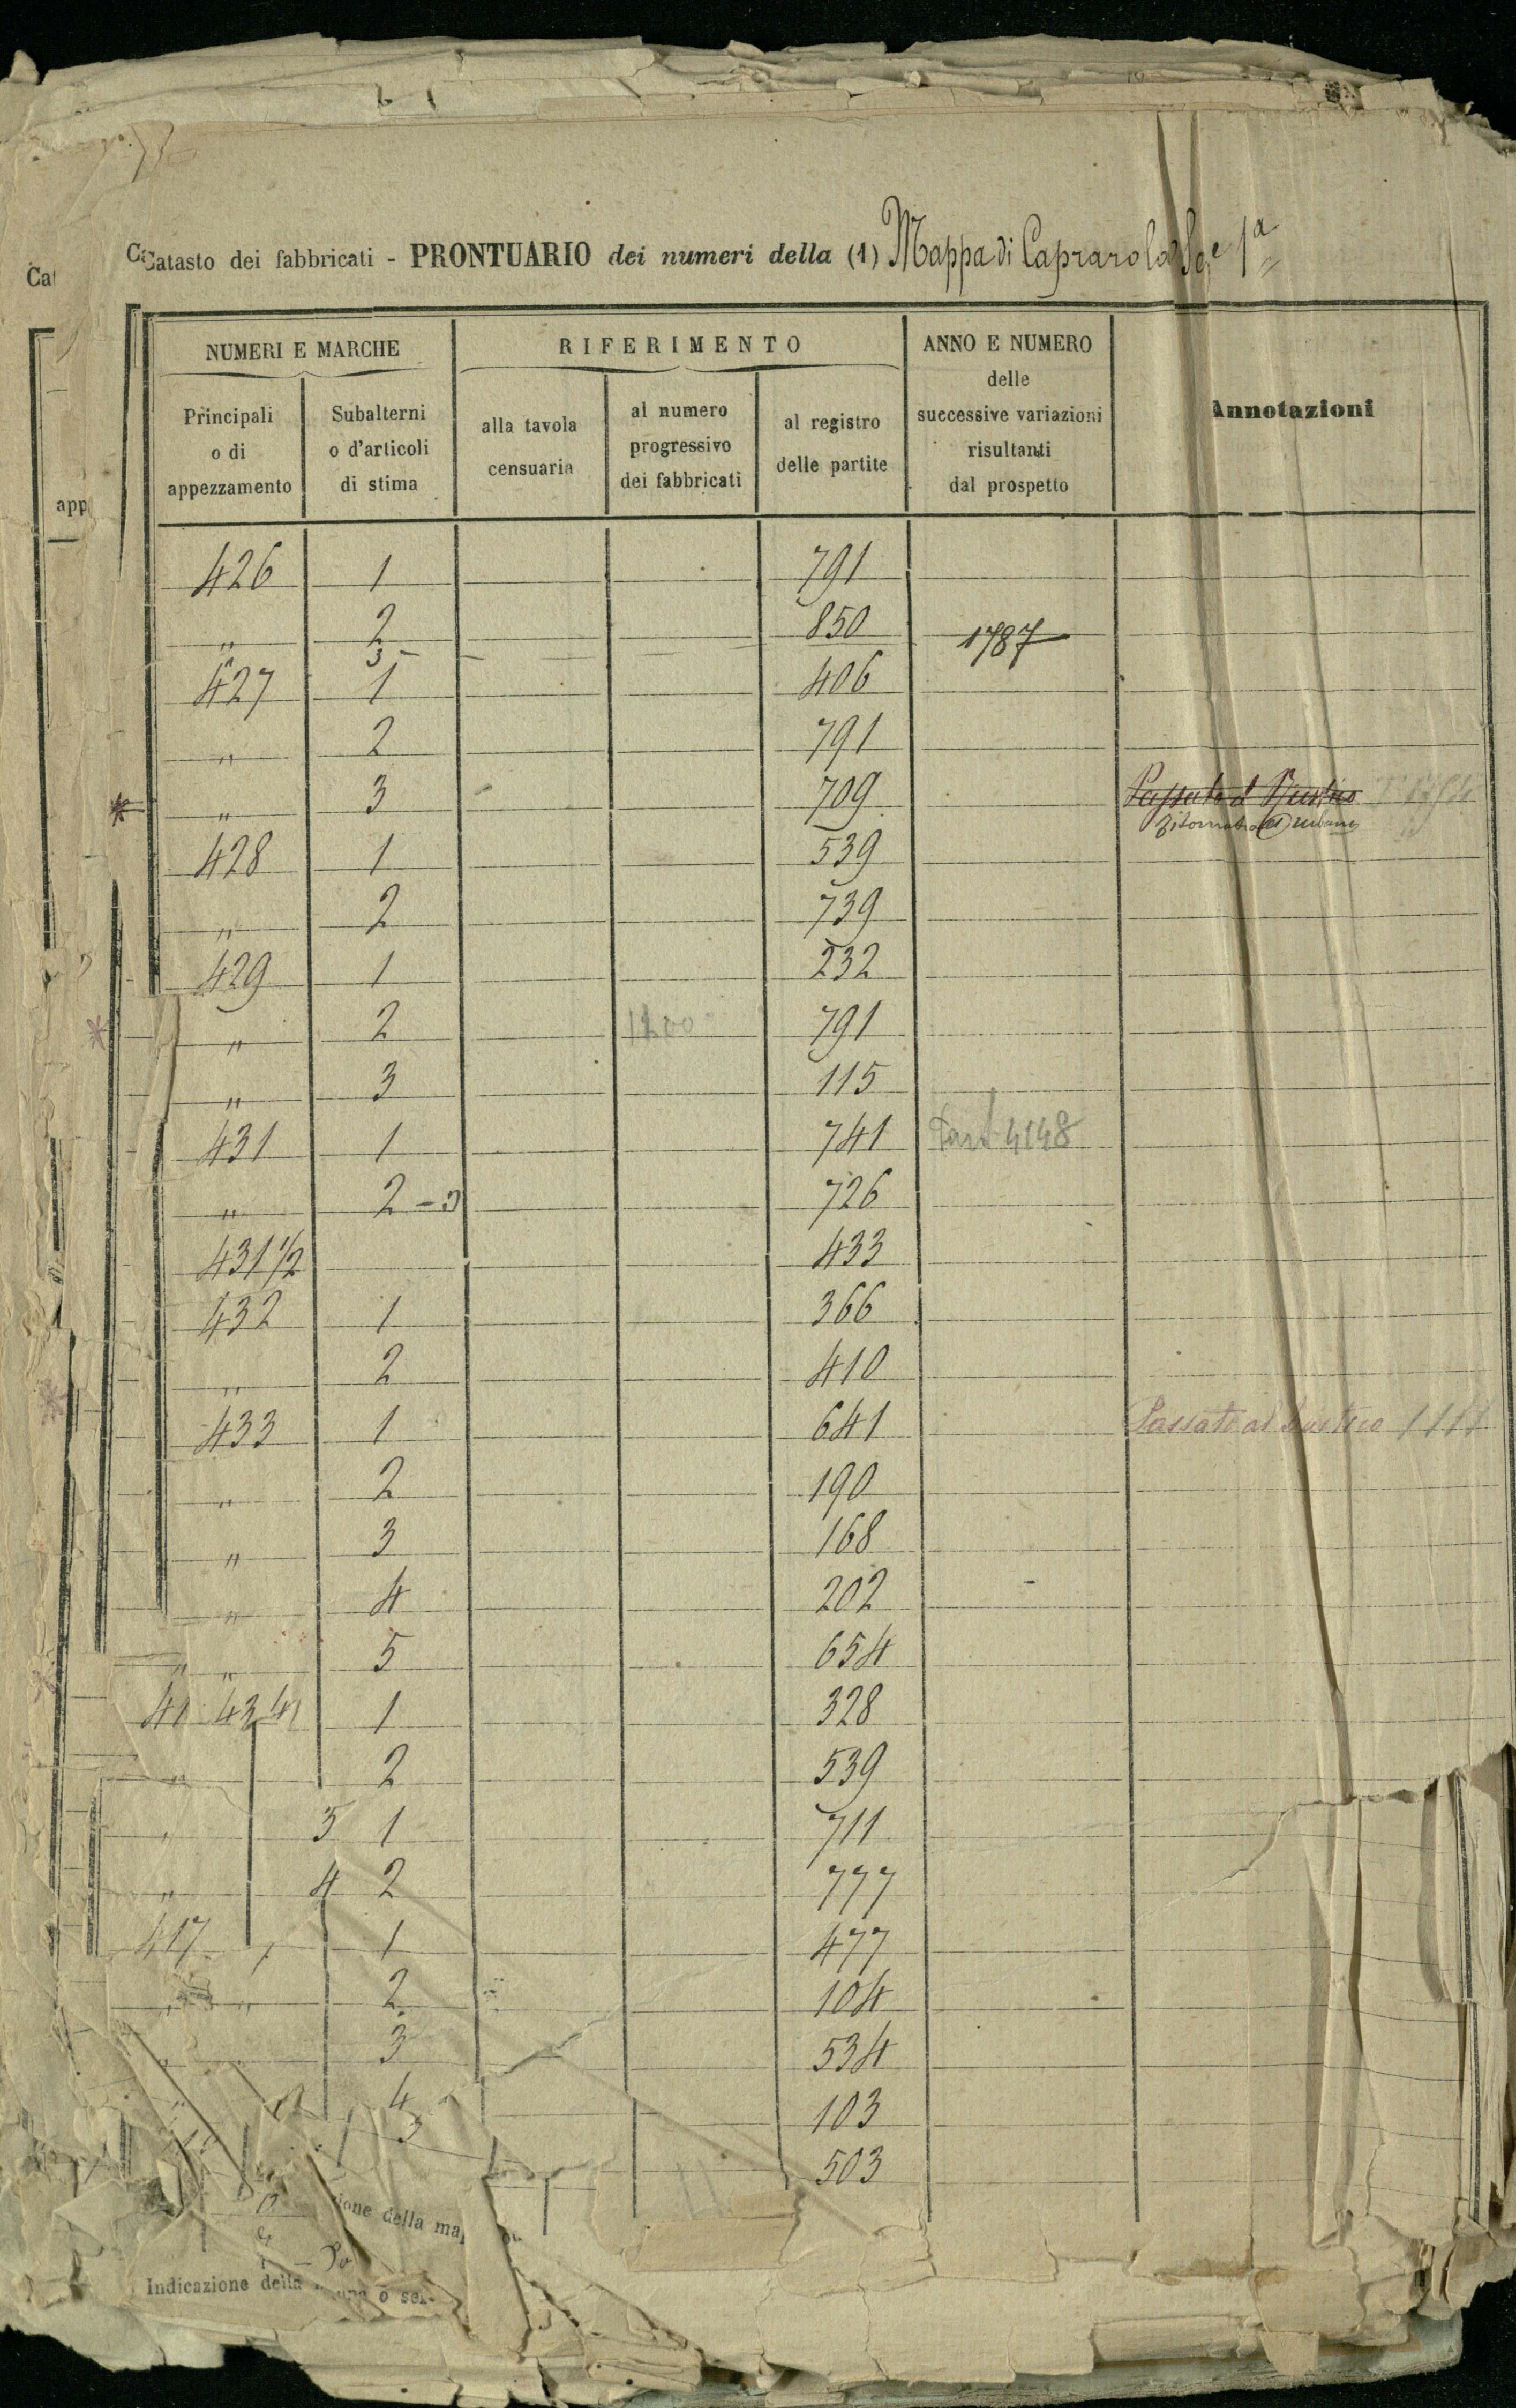 Catasto dei fabbricati - PRONTUARIO dei numeri della (1) Mappa di Caprarola Se.e 1a
NUMERI E MARCHE
RIFERIMENTO
ANNO E NUMERO delle successive variazioni risultanti dal prospetto
Annotazioni
Principali o di appezzamento
Subalterni o d'articoli di stima
alla tavola censuaria
al numero progressivo dei fabbricati
al registro delle partite
426 1 791
„ 2 850 1787
3 –
427 1 406
„ 2 791
* „ 3 709 Passato al Rustico
Ritornato all'urbano
428 1 539
„ 2 739
429 1 232
„ 2 1200 791
„ 3 115
431 1 741 Part 4148
„ 2-3 726
431 1/2 433
432 1 366
„ 2 410
433 1 641 Passato al Rustico
„ 2 190
„ 3 168
„ 4 202
„ 5 654
41 434 1 328
„ 2 539
„ 3 1 711
„ 4 2 777
417 1 477
„ „ 2 104
3 534
4 103
503
zione della map
Indicazione della
o sez